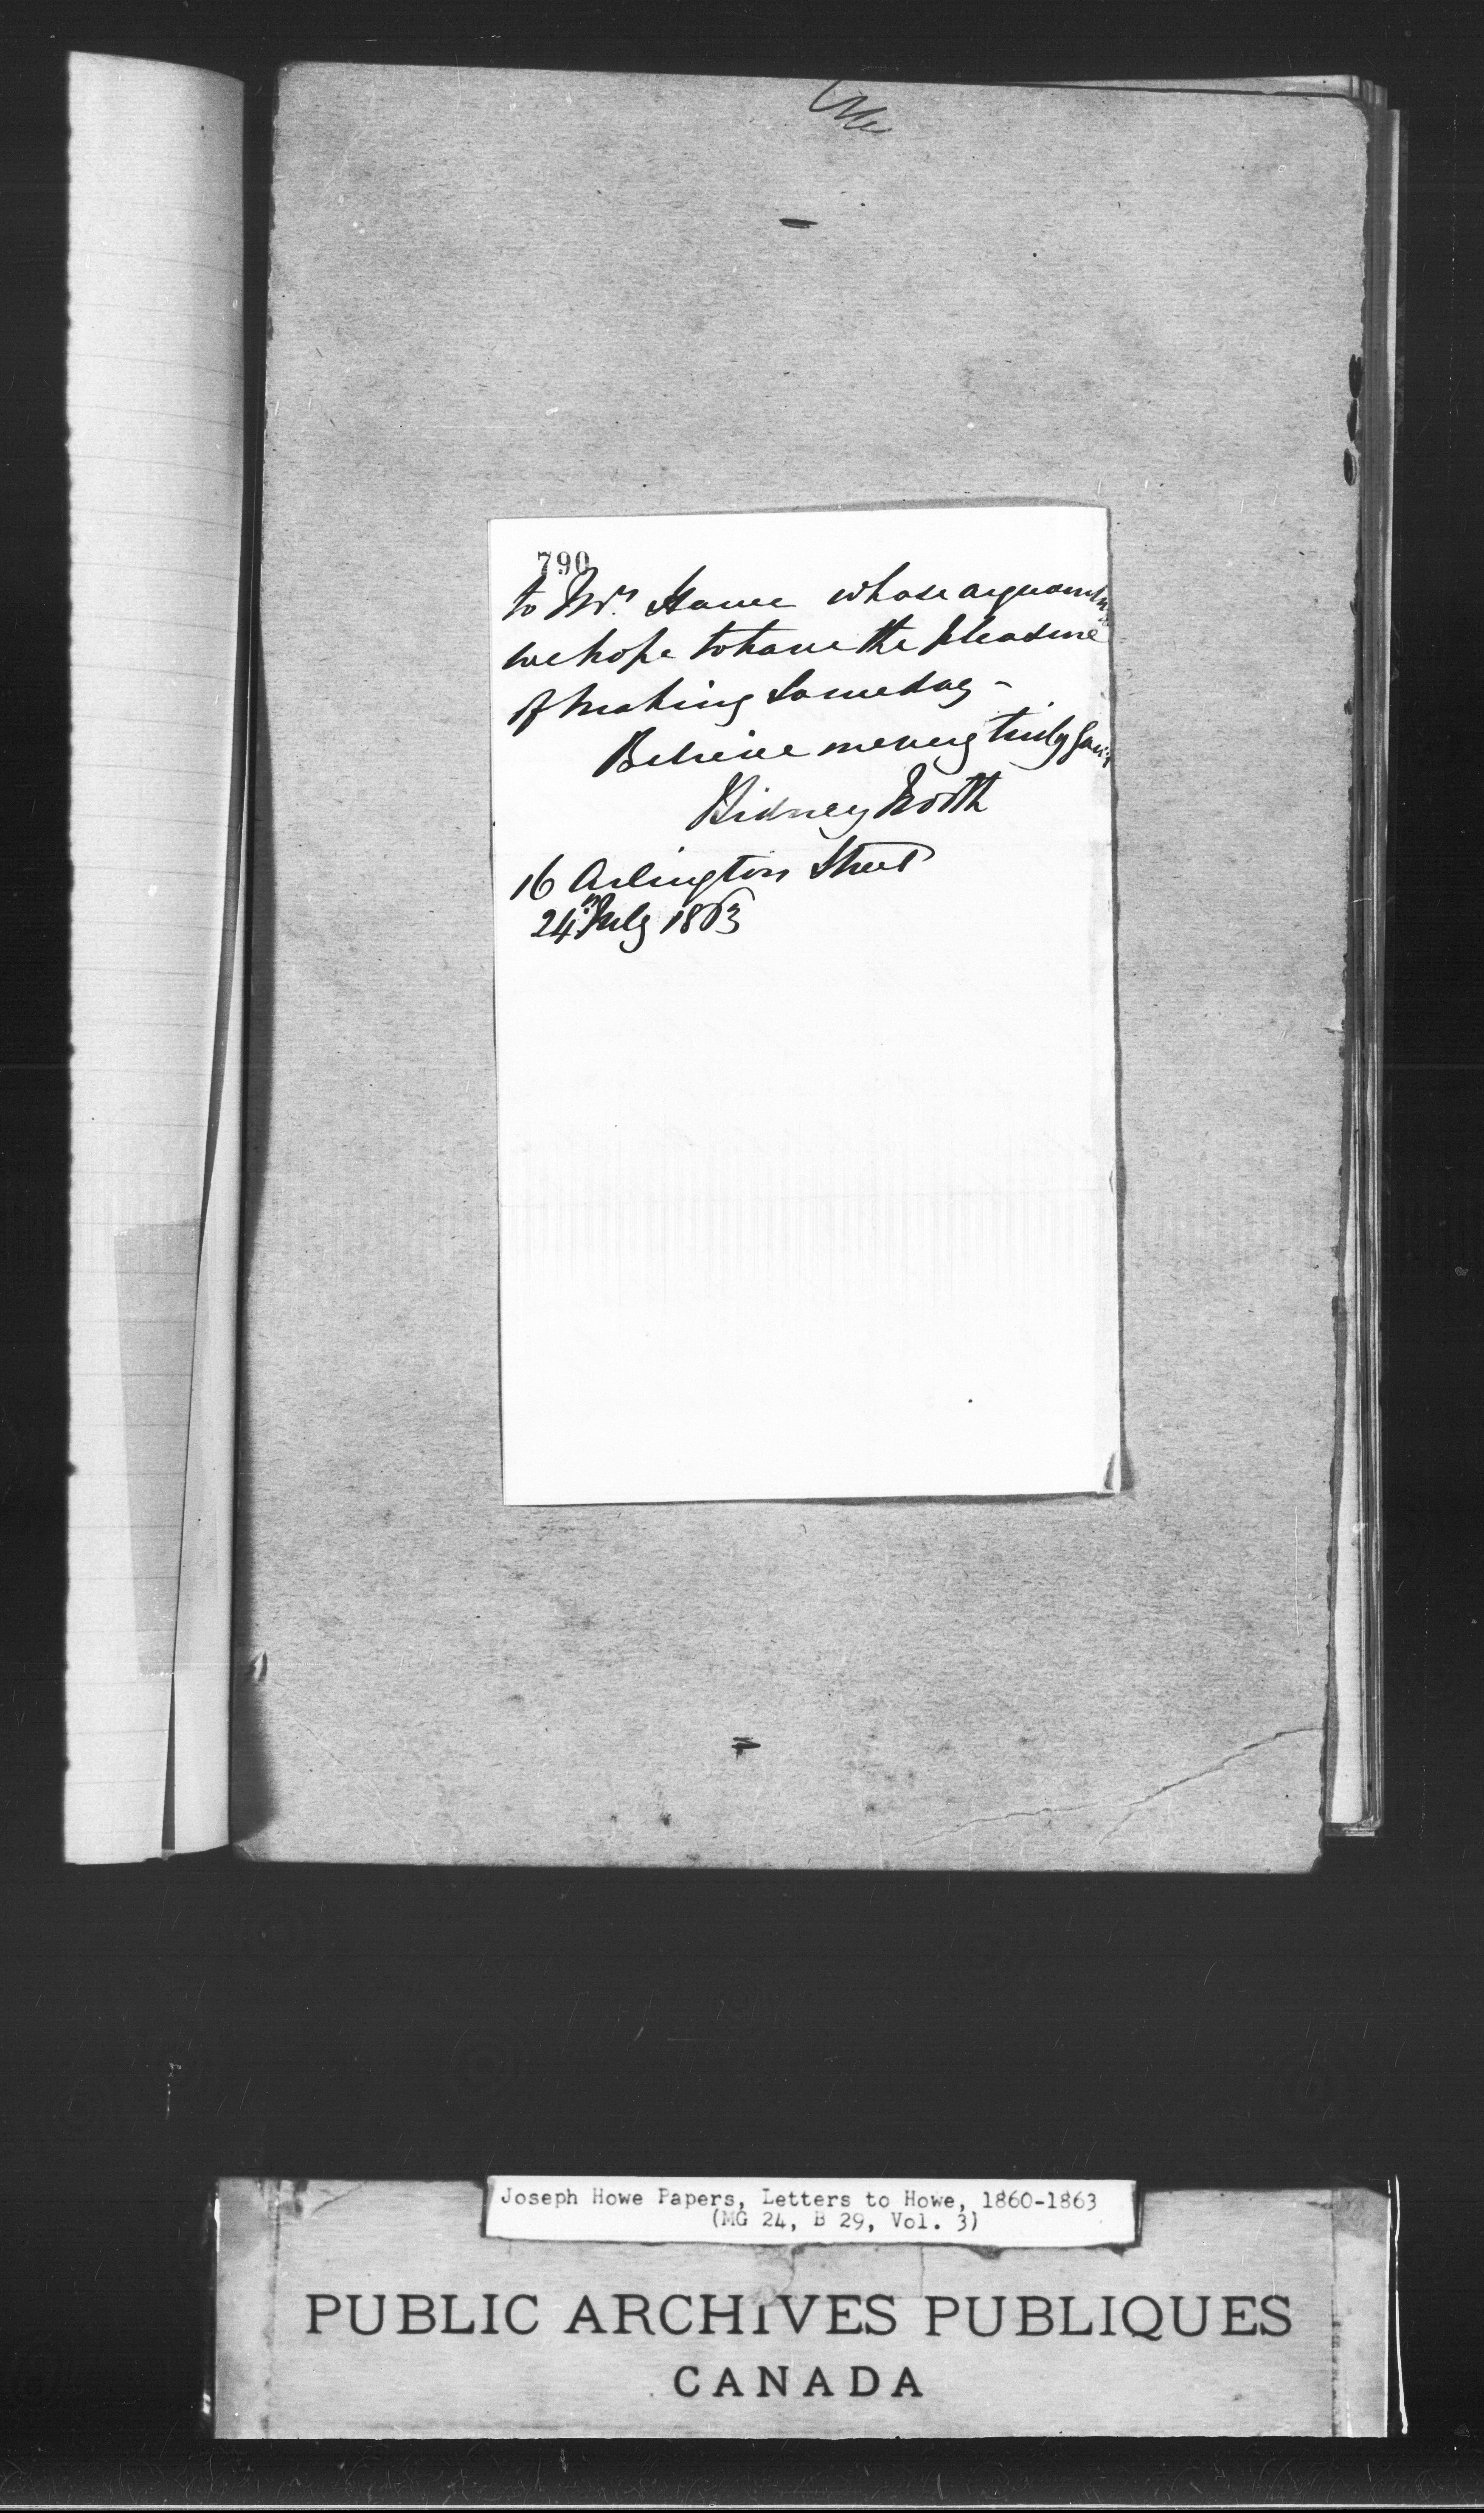 790
to Mrs. Howe whose acquaintance
we hope to have the pleasure
of making someday -
Believe me very truly yours
Sidney North
16 Arlington Street
24th July 1863
Joseph Howe Papers, Letters to Howe, 1860-1863
(MG 24, B 29, Vol. 3)
PUBLIC ARCHIVES PUBLIQUES
CANADA